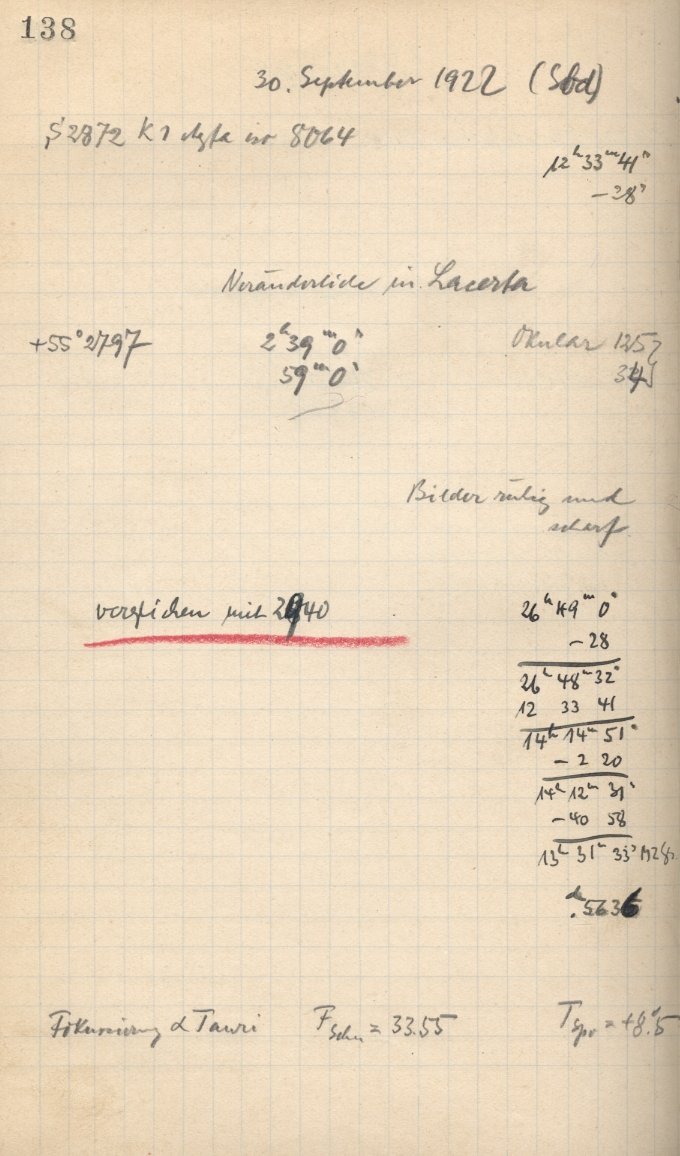 138
30. September 1922 (Sbd)
2872 K 8064
12ʰ33ᵐ41ˢ
−28ˢ
Veränderliche in Lacerta
+55° 2797 2ʰ39ᵐ0ˢ Okular 125}
59ᵐ0ˢ 34}
Bilder ruhig und
scharf.
verglichen mit 2940 26ʰ 49ᵐ 0ˢ
−28
26ʰ 48ᵐ 32ˢ
12 33 41
14ʰ 14ᵐ 51ˢ
−2 20
14ʰ 12ᵐ 31ˢ
−40 58
13ʰ 31ᵐ 33ˢ
ᵈ.5636
Fokussierung α Tauri F = 33.55 T = +8°.5